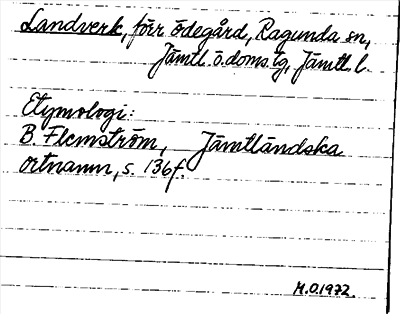 Landverk, förr ödegård, Ragunda sn,
Jämtl. ö. doms. tg, Jämtl. l.
Etymologi:
B. Flemström, Jämtländska
ortnamn, s. 136 f.
M.O. 1972.